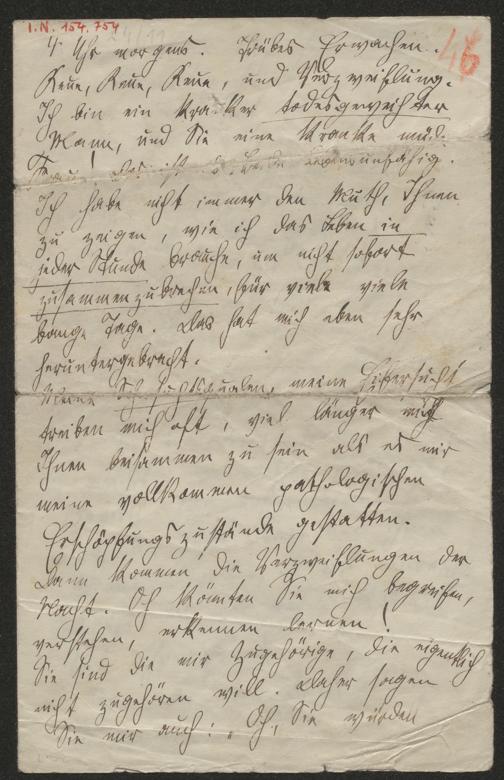 I.N. 154.754
46
4 Uhr morgens. Trübes Erwachen.
Reue, Reue, Reue, und Verzweiflung.
Ich bin ein kranker todesgeweihter
Mann, und Sie eine kranke müde
Frau, das ist
Ich habe nicht immer den Muth, Ihnen
zu zeigen, wie ich das Leben in
jeder Stunde brauche, um nicht sofort
zusammenzubrechen, für viele viele
bange Tage. Das hat mich eben sehr
heruntergebracht.
Meine meine Eifersucht
treiben mich oft, viel länger mit
Ihnen beisammen zu sein als es mir
meine vollkommen pathologischen
Erschöpfungszustände gestatten.
Dann kommen die Verzweiflungen der
Nacht. Oh könnten Sie mich begreifen,
verstehen, erkennen lernen!
Sie sind die mir Zugehörige, die eigentlich
nicht zugehören will. Daher sagen
Sie mir auch: „Oh, Sie würden